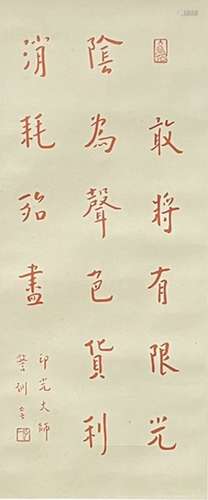 敢將有限光
陰為聲色貨利
消耗殆盡
印光大師
警訓